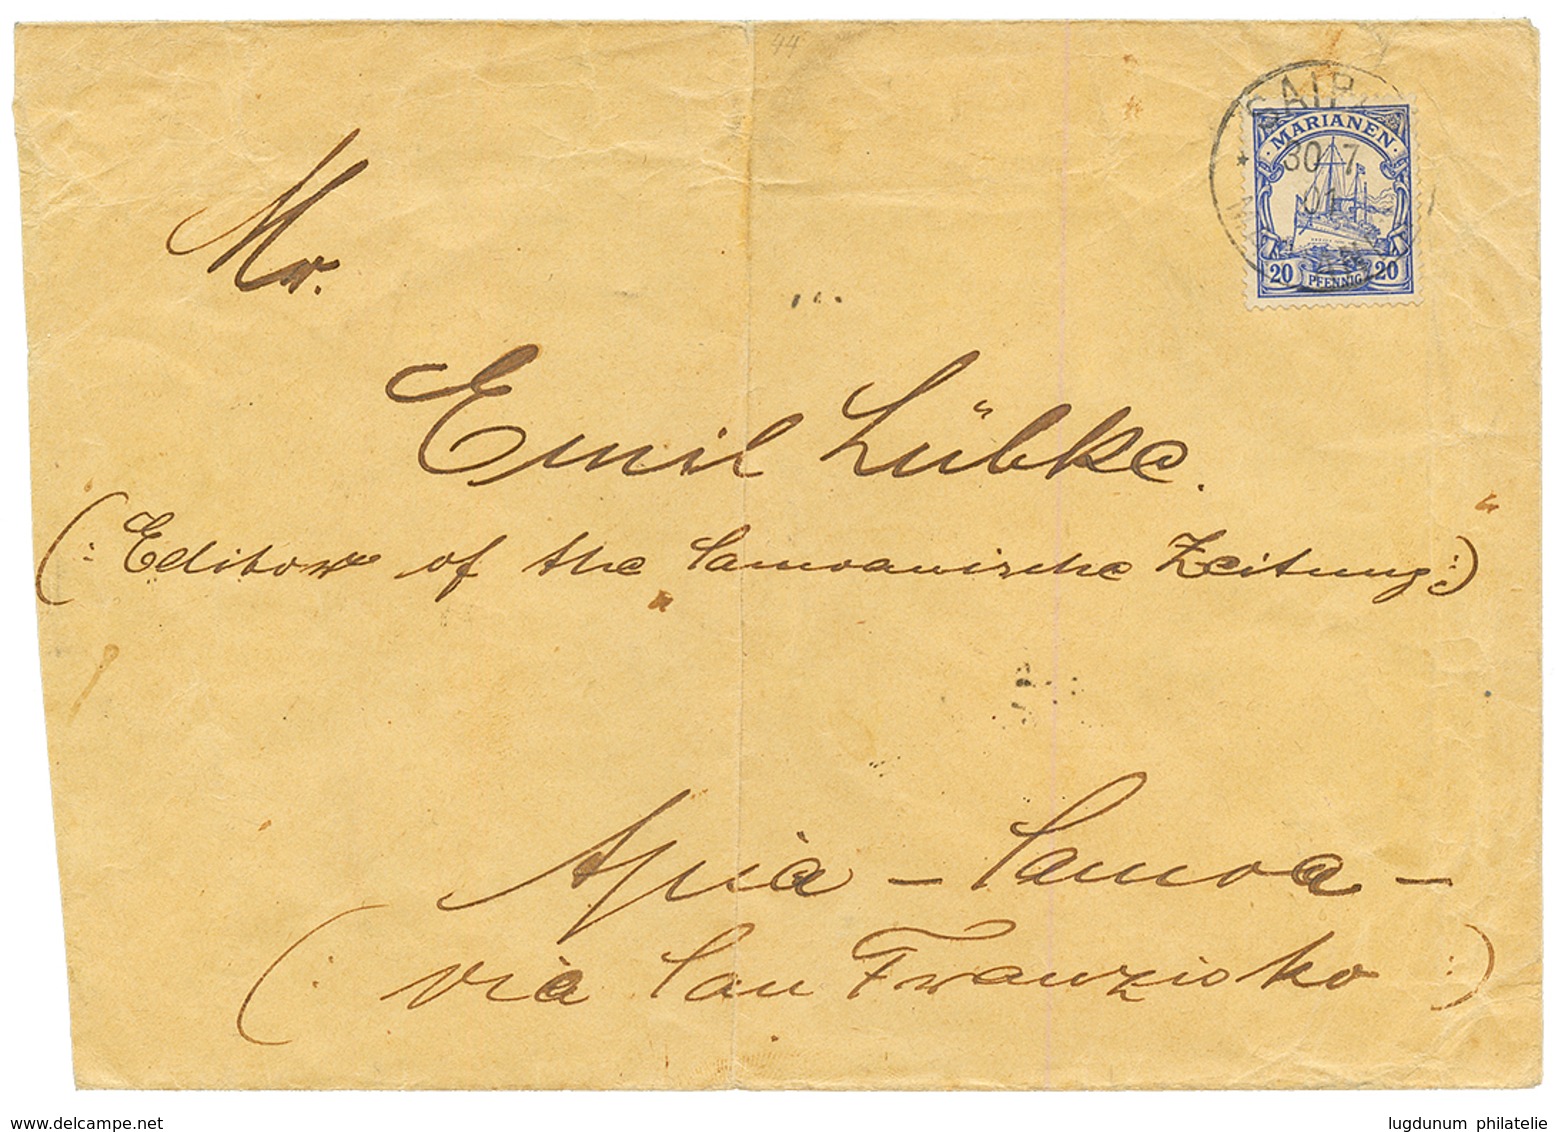 44
SAIP
MARIANEN
30 7
01
20 PFENNIG 20
Mr.
Emil Lübke.
(: Editor of the Samoanische Zeitung :)
Apia - Samoa -
(: via San Franzisko :)
www.delcampe.net
lugdunum philatelie